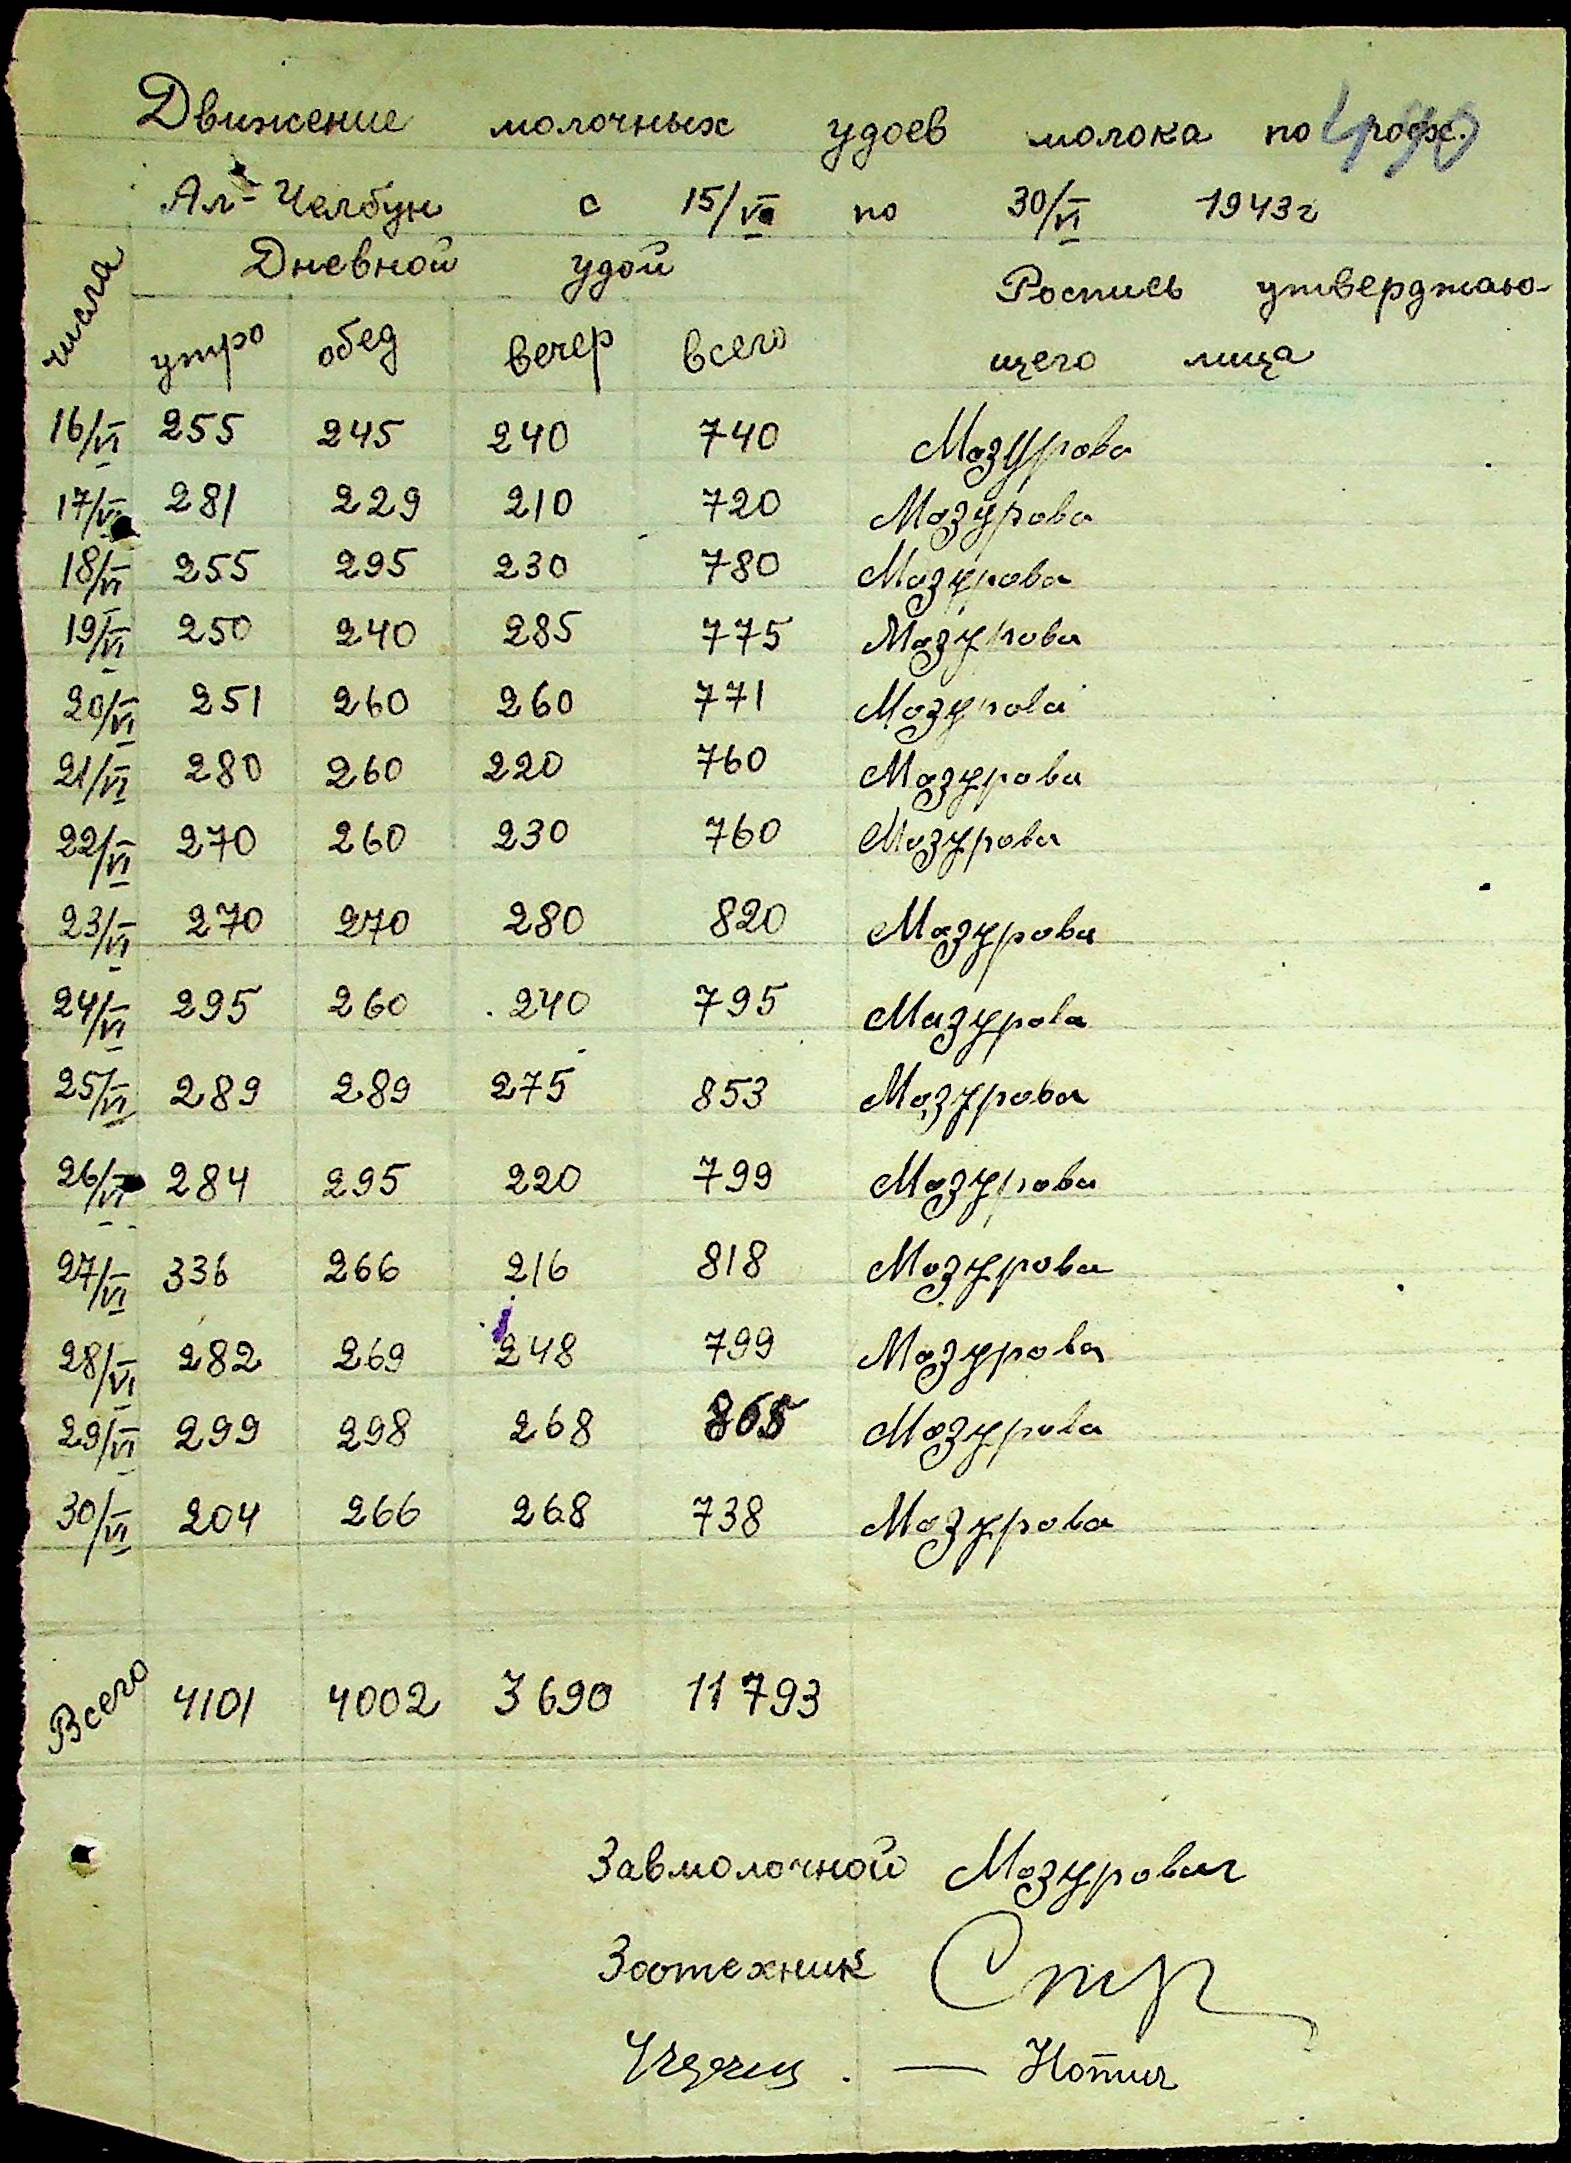 Движение молочных удоев молока по
Ал-Челбун с 15/VI по 30/VI 1943г
числа Дневной удой Роспись утверджаю-
утро обед вечер всего щего лица
16/VI 255 245 240 740 Мазурова
17/VI 281 229 210 720 Мазурова
18/VI 255 295 230 780 Мазурова
19/VI 250 240 285 775 Мазурова
20/VI 251 260 260 771 Мазурова
21/VI 280 260 220 760 Мазурова
22/VI 270 260 230 760 Мазурова
23/VI 270 270 280 820 Мазурова
24/VI 295 260 240 795 Мазурова
25/VI 289 289 275 853 Мазурова
26/VI 284 295 220 799 Мазурова
27/VI 336 266 216 818 Мазурова
28/VI 282 269 248 799 Мазурова
29/VI 299 298 268 865 Мазурова
30/VI 204 266 268 738 Мазурова
Всего 4101 4002 3690 11793
Завмолочной Мазурова
Зоотехник